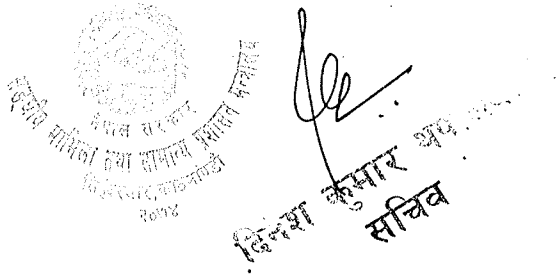 नेपाल सरकार
सङ्घीय मामिला तथा सामान्य प्रशासन मन्त्रालय
सिंहदरबार, काठमाण्डौ
२०७४
दिनेश कुमार
सचिव